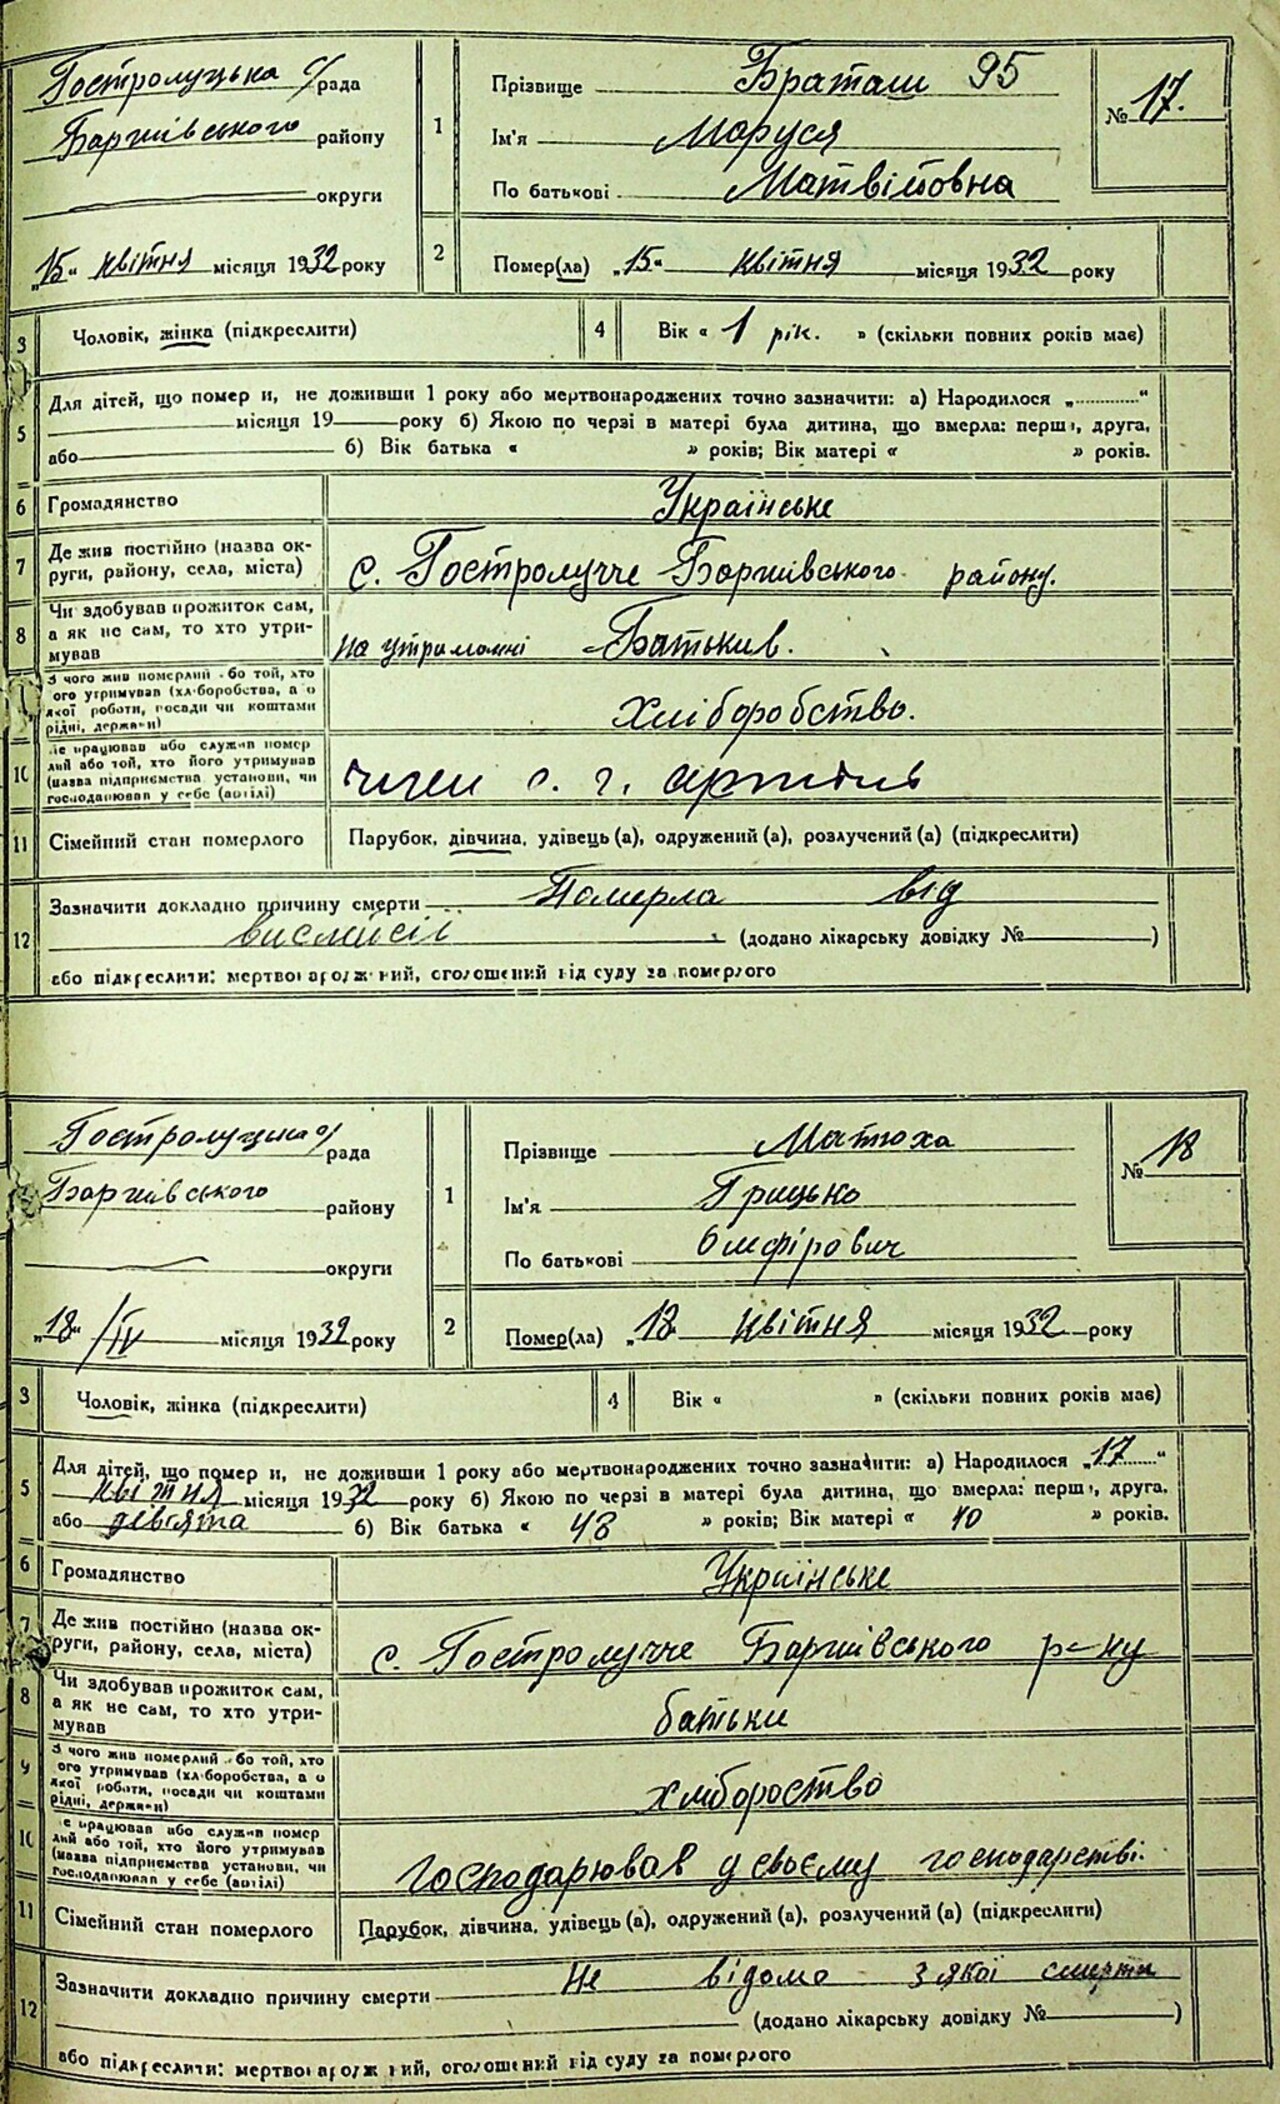 Гостролуцька с/рада
Баришівського району
округи
„15“ квітня місяця 1932 року
1
Прізвище Браташ 95
Ім'я Маруся
По батькові Матвіївна
№ 17.
2
Помер(ла) „15“ квітня місяця 1932 року
3 Чоловік, жінка (підкреслити)
4 Вік « 1 рік. » (скільки повних років має)
5
Для дітей, що помер и, не доживши 1 року або мертвонароджених точно зазначити: а) Народилося „...........“
місяця 19 року б) Якою по черзі в матері була дитина, що вмерла: перша, друга,
або б) Вік батька « » років; Вік матері « » років.
6 Громадянство Українське
7 Де жив постійно (назва ок-
руги, району, села, міста) с. Гостролуччє Баришівського району.
8 Чи здобував прожиток сам,
а як не сам, то хто утри-
мував на утриманні Батьків.
З чого жив померлий або той, хто
ого утримував (хліборобства, а о
якої роботи, посади чи коштами
рідні, держави) хліборобство.
10 е працював або служив помер
лий або той, хто його утримував
(назва підприємства установи, чи
господарював у себе (артілі) член с. г. артілв
11 Сімейний стан померлого Парубок, дівчина, удівець (а), одружений (а), розлучений (а) (підкреслити)
12
Зазначити докладно причину смерти Померла від
(додано лікарську довідку № )
або підкреслити: мертвонароджений, оголошений від суду за померлого
Гостролуцька с/рада
Баришівського району
округи
„18“ /IV місяця 1932 року
1
Прізвище Матюха
Ім'я Грицько
По батькові Онфірович
№ 18
2
Помер(ла) „18 квітня місяця 1932 року
3 Чоловік, жінка (підкреслити)
4 Вік « » (скільки повних років має)
5
Для дітей, що помер и, не доживши 1 року або мертвонароджених точно зазначити: а) Народилося „17“
квітня місяця 1932 року б) Якою по черзі в матері була дитина, що вмерла: перша, друга.
або девята б) Вік батька « 48 » років; Вік матері « 40 » років.
6 Громадянство Українське
7 Де жив постійно (назва ок-
руги, району, села, міста) с. Гостролуччє Баришівського р-ну
8 Чи здобував прожиток сам,
а як не сам, то хто утри-
мував батьки
9 З чого жив померлий або той, хто
ого утримував (хліборобства, а о
якої роботи, посади чи коштами
рідні, держави) хлібороство
10 е працював або служив помер
лий або той, хто його утримував
(назва підприємства установи, чи
господарював у себе (артілі) господарював у своєму господарстві.
11 Сімейний стан померлого Парубок, дівчина, удівець (а), одружений (а), розлучений (а) (підкреслити)
12
Зазначити докладно причину смерти Не відомо з якої смерти
(додано лікарську довідку № )
або підкреслити: мертвонароджений, оголошений від суду за померлого